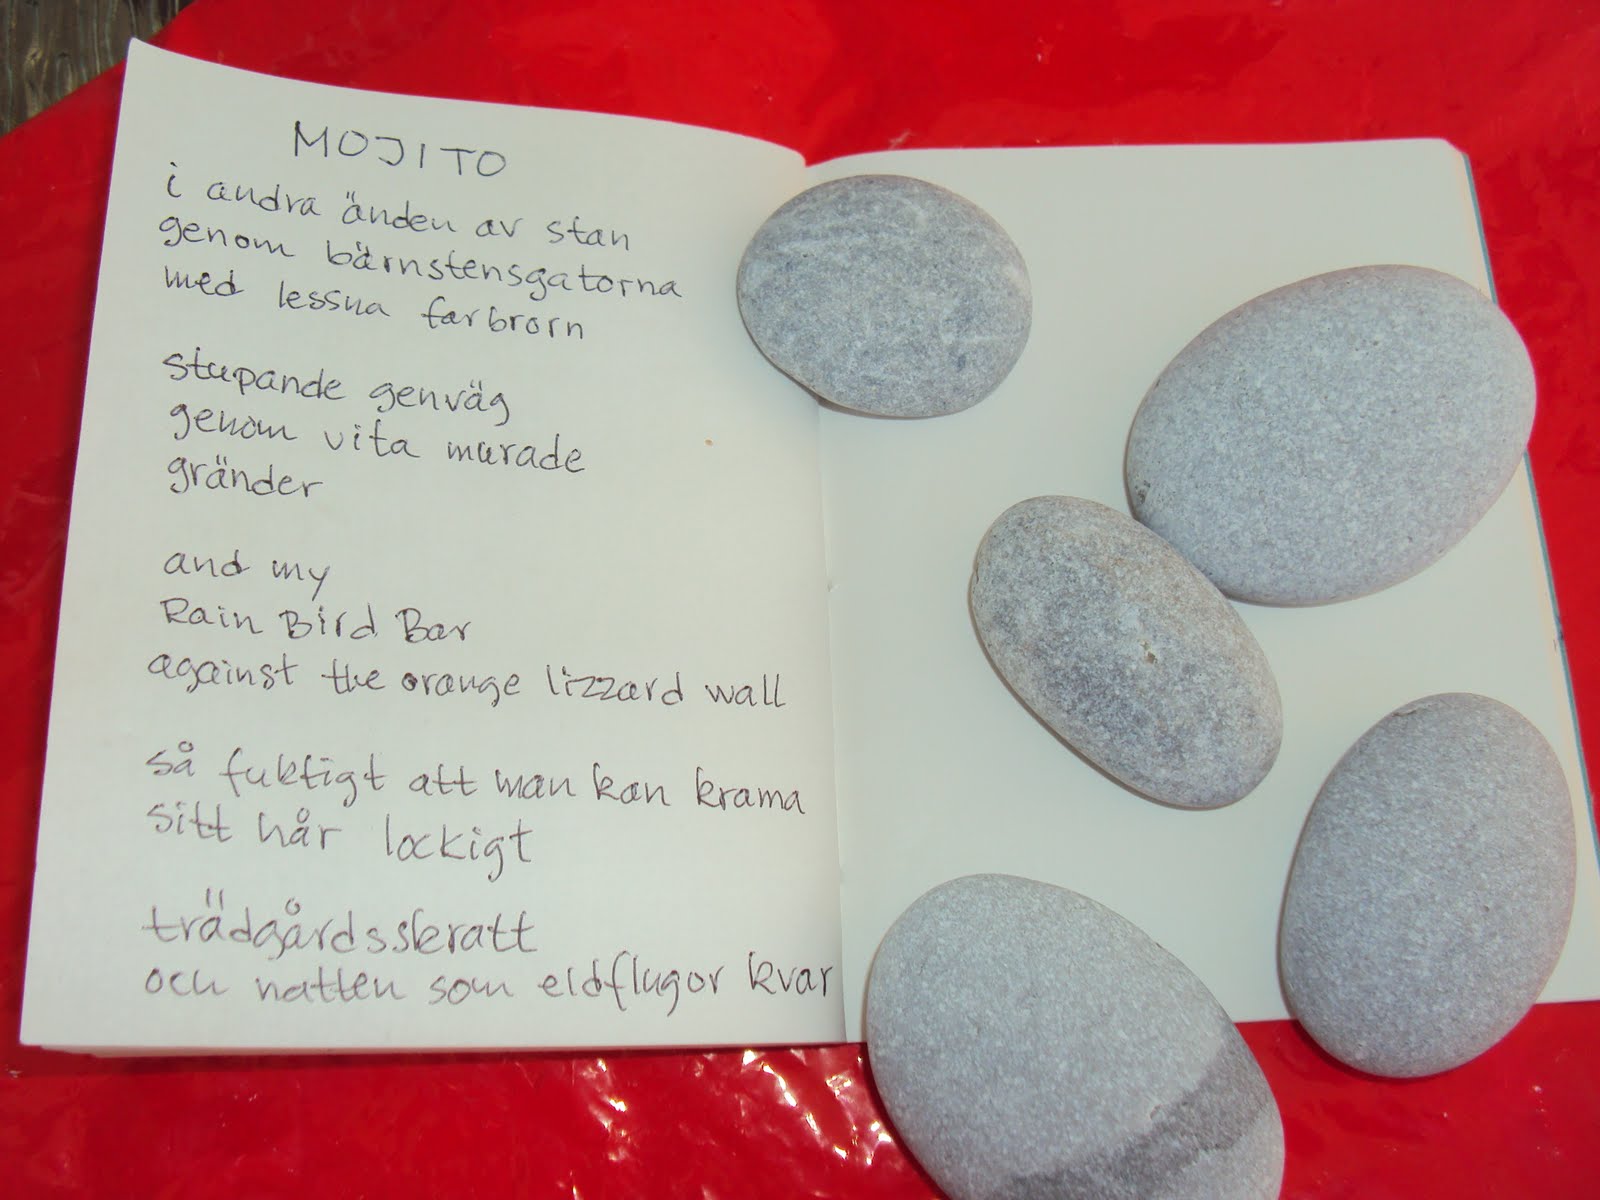 MOJITO
i andra änden av stan
genom bärnstensgatorna
med lessna farbrorn
stupande genväg
genom vita murade
gränder
and my
Rain Bird Bar
against the orange lizzard wall
så fuktigt att man kan krama
sitt hår lockigt
trädgårdsskratt
och natten som eldflugor kvar